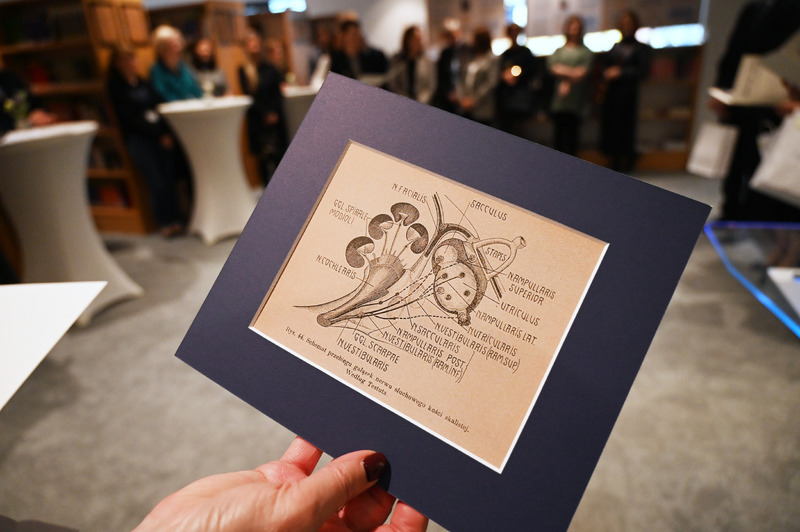 N. FACIALIS
SACCULUS
GGL. SPIRALE
MODIOLI
STAPES
N. COCHLEARIS
N. AMPULLARIS
SUPERIOR
UTRICULUS
N. AMPULLARIS LAT.
N. UTRICULARIS
N. VESTIBULARIS (RAM. SUP.)
N. SACCULARIS
N. AMPULLARIS POST.
N. VESTIBULARIS (RAM. INF.)
GGL. SCARPAE
N. VESTIBULARIS
Ryc. 44. Schemat przebiegu gałązek nerwu słuchowego kości skalistej.
Według Testuta.